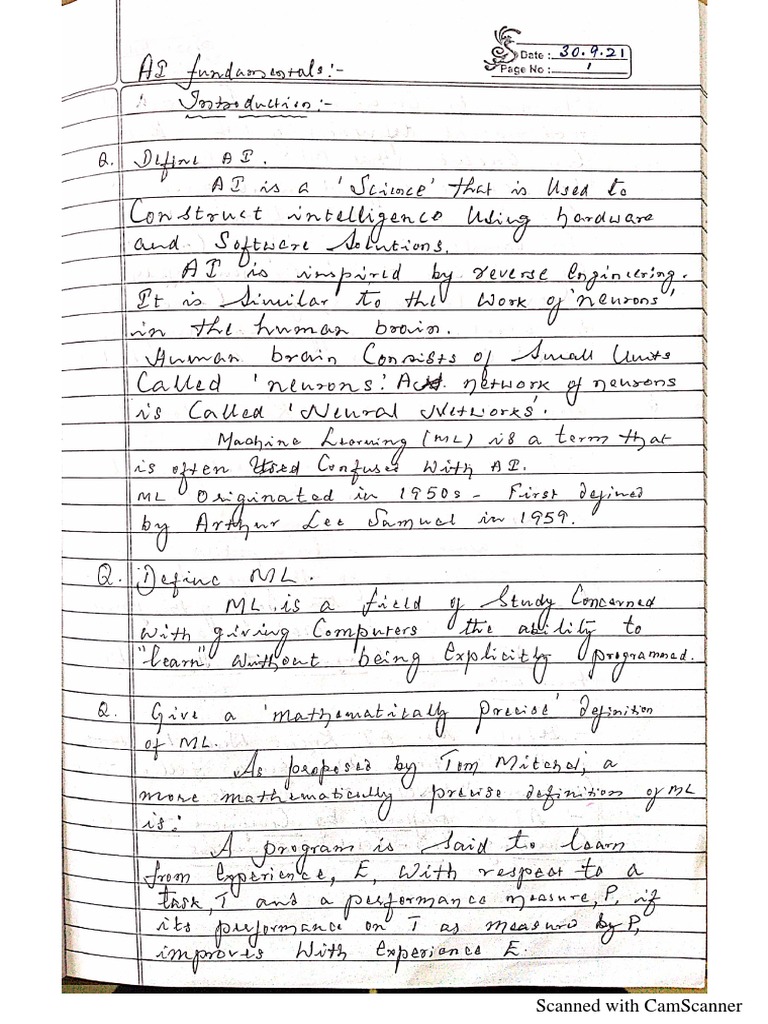 Date : 30.9.21
Page No : 1
AI fundamentals:-
Introduction:-
Q. Define AI.
AI is a 'Science' that is Used to
Construct intelligence Using hardware
and Software Solutions.
AI is inspired by reverse engineering.
It is Similar to the work of 'neurons'
in the human brain.
Human brain Consists of Small Units
Called 'neurons'. A network of neurons
is Called 'Neural Networks'.
Machine Learning (ML) is a term that
is often Confused With AI.
ML Originated in 1950s - First defined
by Arthur Lee Samuel in 1959.
Q. Define ML.
ML is a field of Study Concerned
With giving Computers the ability to
"learn" Without being Explicitly programmed.
Q. Give a 'mathematically precise' definition
of ML.
As proposed by Tom Mitchel, a
more mathematically precise definition of ML
is:
A program is Said to learn
from Experience, E, With respect to a
task, T and a performance measure, P, if
its performance on T as measured by P,
improves With Experience E.
Scanned with CamScanner